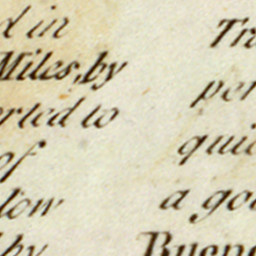 d in
Miles, by
erted to
of
low
by
Tra
per
quic
a goo
Bueno